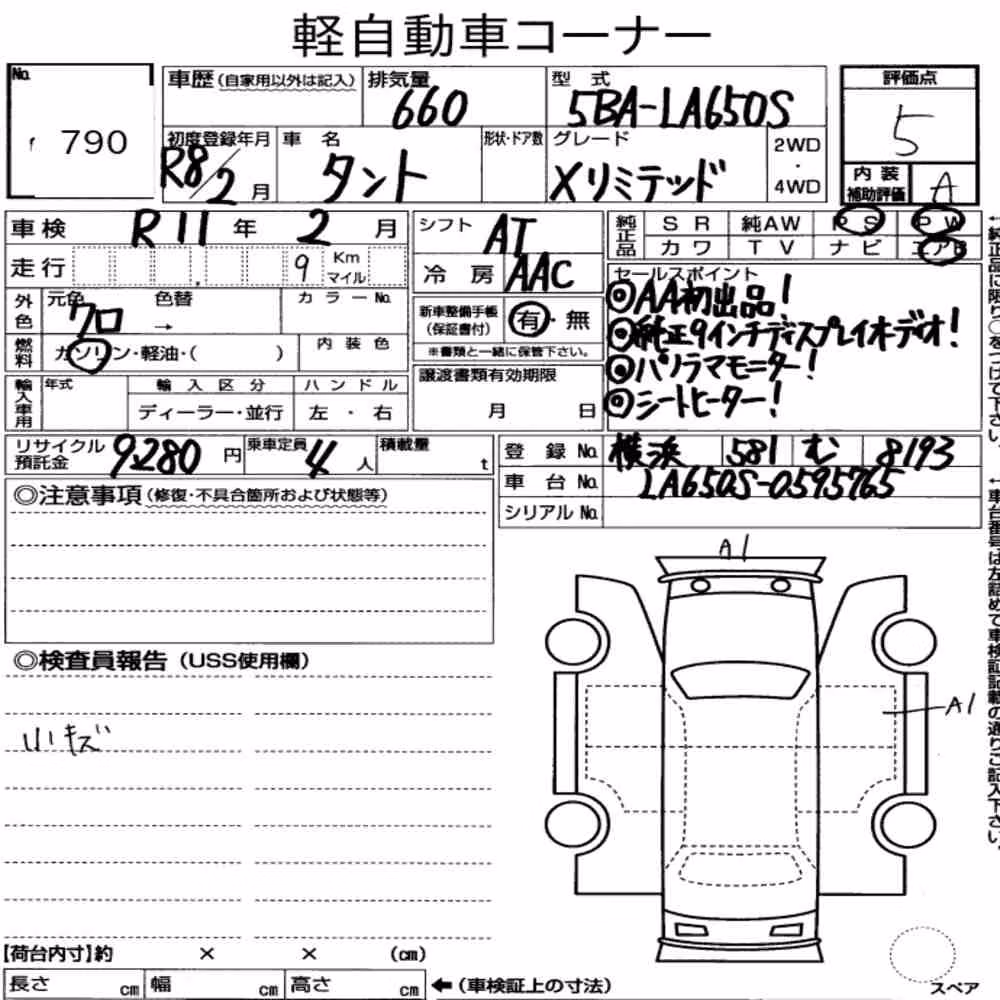 軽自動車コーナー
No. 790
車歴 (自家用以外は記入) 排気量 660 型式 5BA-LA650S
評価点 5
初度登録年月 R8/2月 車名 タント 形状・ドア数 グレード Xリミテッド 2WD・4WD
内装補助評価 A
車検 R11年 2月 シフト AT
純正品 SR 純AW PS PW
カワ TV ナビ エアB
走行 9 Km マイル 冷房 AAC
外色 元色 クロ 色替 → カラーNo.
新車整備手帳 (保証書付) 有・無
※書類と一緒に保管下さい。
燃料 ガソリン・軽油・( ) 内装色
セールスポイント
◎AA初出品!
◎純正9インチディスプレイオーディオ!
◎パノラマモニター!
◎シートヒーター!
輸入車用 年式 輸入区分 ハンドル
ディーラー・並行 左・右
譲渡書類有効期限
月 日
リサイクル預託金 9280円 乗車定員 4人 積載量 t
登録No. 横浜 581 む 8193
車台No. LA650S-0595765
シリアルNo.
◎注意事項 (修復・不具合箇所および状態等)
◎検査員報告 (USS使用欄)
小キズ
A1
A1
【荷台内寸】約 × × (cm)
長さ cm 幅 cm 高さ cm ←(車検証上の寸法)
スペア
←純正品に限り○をつけて下さい。
←車台番号は左詰めで車検証記載の通りご記入下さい。